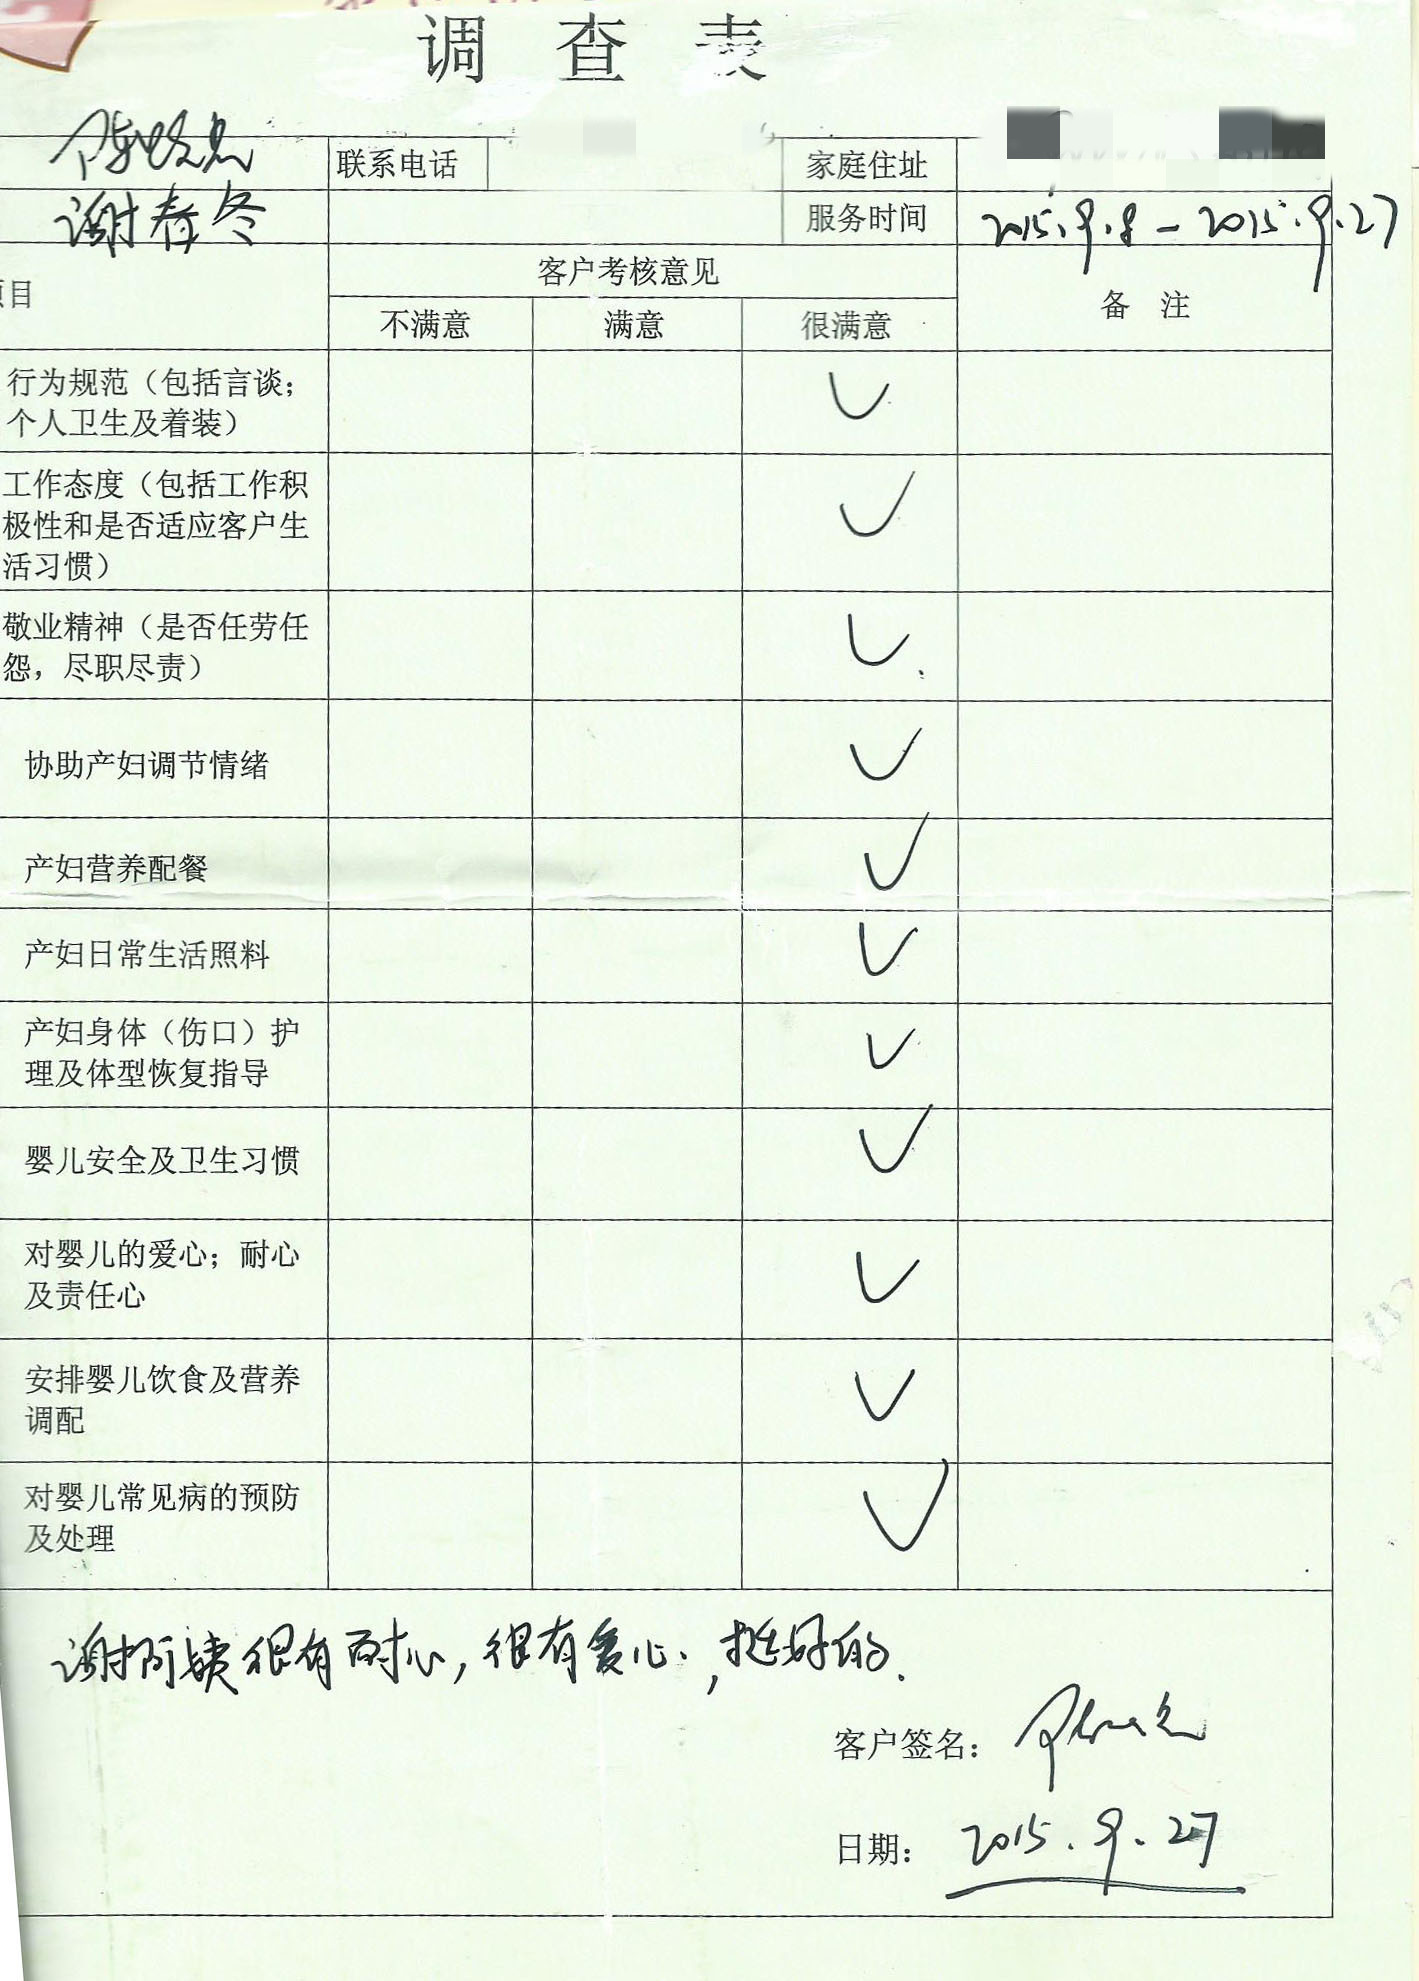 调查表
联系电话
家庭住址
谢春冬
服务时间
2015.9.8-2015.9.27
目
客户考核意见
备 注
不满意
满意
很满意
行为规范（包括言谈；
个人卫生及着装）
工作态度（包括工作积
极性和是否适应客户生
活习惯）
敬业精神（是否任劳任
怨，尽职尽责）
协助产妇调节情绪
产妇营养配餐
产妇日常生活照料
产妇身体（伤口）护
理及体型恢复指导
婴儿安全及卫生习惯
对婴儿的爱心；耐心
及责任心
安排婴儿饮食及营养
调配
对婴儿常见病的预防
及处理
谢阿姨很有耐心，很有爱心，挺好的.
客户签名：
日期： 2015.9.27